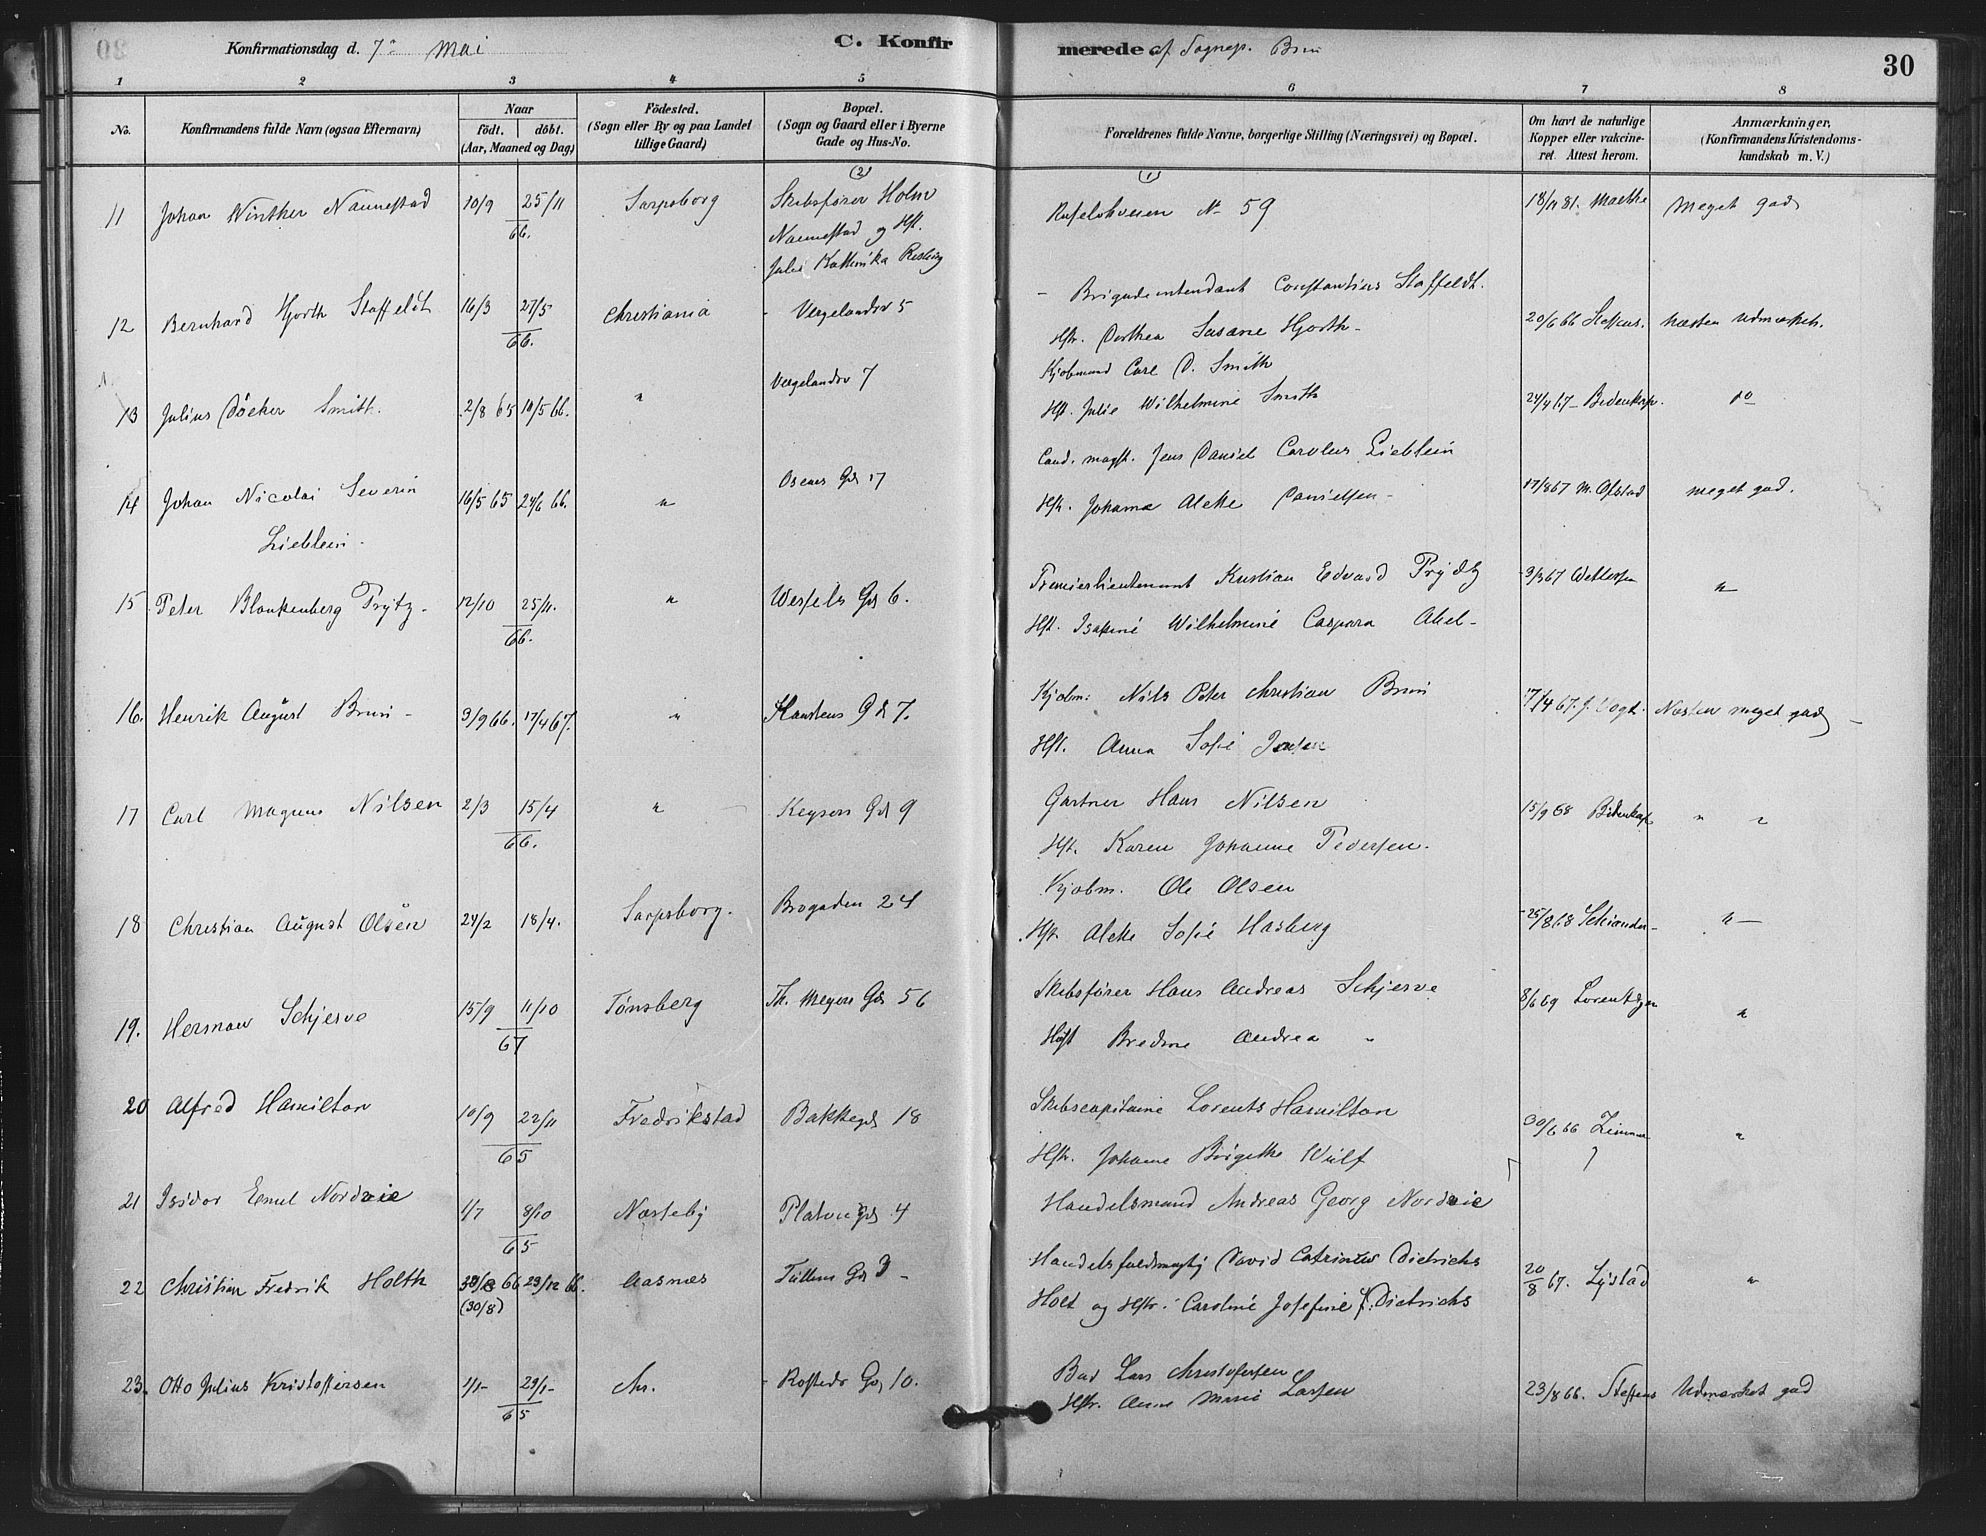 Konfirmationsdag d. 7de Mai C. Konfirmerede af Sognepr. Brun 30
1 2 3 4 5 6 7 8
No. Konfirmandens fulde Navn (ogsaa Efternavn) Naar födt. döbt. (Aar, Maaned og Dag) Födested. (Sogn eller By og paa Landet tillige Gaard) Bopæl. (Sogn og Gaard eller i Byerne Gade og Hus-No. Forældrenes fulde Navne, borgerlige Stilling (Næringsvei) og Bopæl. Om havt de naturlige Kopper eller vakcineret. Attest herom. Anmærkninger, (Konfirmandens Kristendomskundskab m. V.)
11 Johan Winther Nannestad 10/9 25/11 66. Sarpsborg (2) Skibsfører Holm Nannestad og Hst. (1) No 59 18/11 81. Meget god
12 Bernhard Hjorth Staffeldt 16/3 27/5 66. Christiania Vergelandsv 5
- Brigadeintendant Constantius Staffeldt.
Hstr. Dorthea Susane Hjorth - 20/6 66 Steffens. Næsten Udmærket.
13 Julius Döcker Smith. 2/8 65 10/5 66. " Vergelandsv 7
Kjøbmand Carl D. Smith
Hst. Julie Wilhelmine Smith 24/4 67 - Bidenkap. do
14 Johan Nicolai Severin Lieblein - 16/5 65 24/6 66. " Gd 17
Cand. magst. Jens Daniel Carolus Lieblein
Hstr. Johanna Alette Danielsen - 17/8 67 meget god.
15 Peter Blankenberg Prÿtz - 12/10 25/11. 66. " Wessels Gd 6.
Premierlieutenant Kristian Edvard Prÿdtz 3/3 67 "
Hst. Wilhelmine Caspara Abel -
16. Henrik August Brun - 3/9 66. 17/4 67. " Gd 7.
Kjøbm: Nils Peter Christian Brun 17/4 67. J. Vogt. Næsten meget god -
Hst. Anna Sofie Jensen
17 Carl Magnus Nilsen 2/3 15/4 66. " Keysers Gd 9
Gartner Hans Nilsen 15/9 68 Bidenkap " "
Hst. Karen Johanne Pedersen.
18 Christian August Olsen 24/2 18/4. Sarpsborg. Brogaden 24
Kjøbm. Ole Olsen
Hst. Alette Sofie Hasberg 25/8 68 "
19. Herman Schjerve 15/9 11/10 67 Tønsberg Th. Meyers Gd 56
Skibsfører Hans Andreas Schjerve 8/6 69 Lorentzen "
Hst Andrea "
20 Alfred Hamilton 10/9 22/11 65 Fredrikstad Bakkegd 18
Skibscapitaine Lorents Hamilton 30/6 66 "
Hstr. Johanne Birgitte Wulf
21 Isidor Emil Nordvie 1/7 8/10 65 Næsseby Platous Gd 4
Handelsmand Andreas Georg Nordvie
22 Christian Fredrik Holth (30/8) 23/12 66. Aasnes Tullins Gd 3 -
Handelsfuldmægtig David Catrinus Dietrichs
Holt og Hstr. Caroline Josefine f. Dietrichs 20/8 67. Lystad "
23. Otto Julius Kristoffersen 1/1 - 29/1 - 65 Chr. - Rosteds Gd 10.
Lars Christofersen
Hstr. Anne Marie Larsen 23/8 66. Steffens Udmærket god